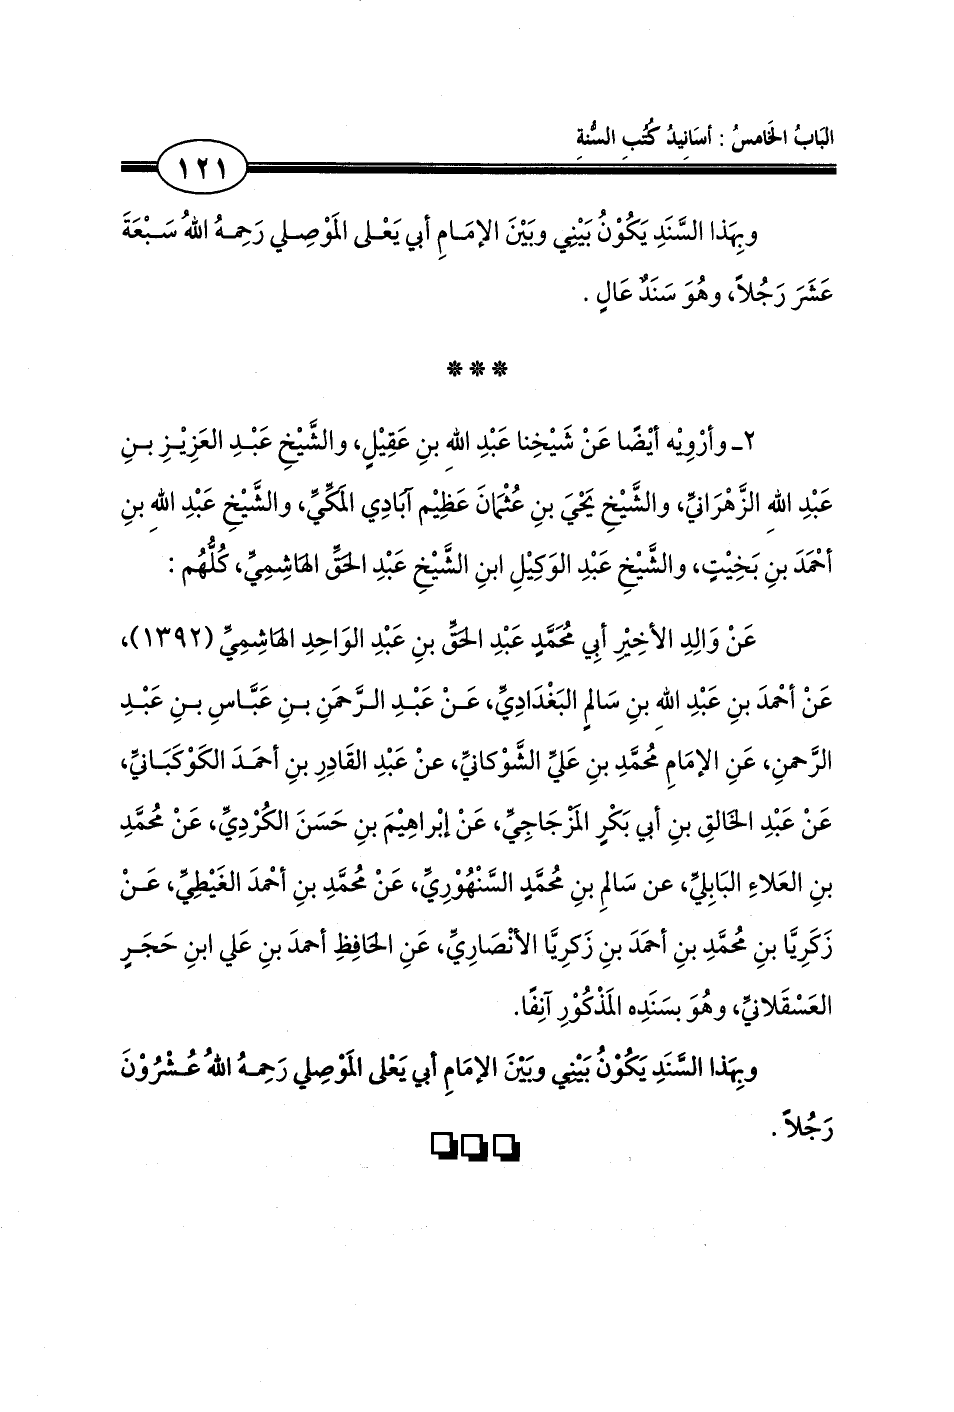 البَابُ الخَامسُ : أسَانِيدُ كُتُبِ السُّنةِ
١٢١
وبِهَذا السَّنَدِ يَكُوْنُ بَيْنِي وبَيْنَ الإمَامِ أبي يَعْلى المَوْصِلي رَحِمهُ اللهُ سَبْعَةَ
عَشَرَ رَجُلاً، وهُوَ سَنَدٌ عَالٍ .
***
٢ـ وأرْوِيْه أيْضًا عَنْ شَيْخِنا عَبْدِ اللهِ بنِ عَقِيْلٍ، والشَّيْخِ عَبْدِ العَزِيْزِ بنِ
عَبْدِ اللهِ الزَّهْرَانيِّ، والشَّيْخِ يَحْيَ بنِ عُثْمَانَ عَظِيْم آبَادِي المَكِّيِّ، والشَّيْخِ عَبْدِ اللهِ بنِ
أحْمَدَ بنِ بَخِيْتٍ، والشَّيْخِ عَبْدِ الوَكِيْلِ ابنِ الشَّيْخِ عَبْدِ الحَقِّ الهَاشِمِيِّ، كُلُّهُم :
عَنْ وَالِدِ الأخِيْرِ أبِي مُحَمَّدٍ عَبْدِ الحَقِّ بنِ عَبْدِ الوَاحِدِ الهَاشِمِيِّ (١٣٩٢)،
عَنْ أحْمَدَ بنِ عَبْدِ اللهِ بنِ سَالمٍ البَغْدَادِيِّ، عَنْ عَبْدِ الرَّحمَنِ بنِ عَبَّاسِ بنِ عَبْدِ
الرَّحمنِ، عَنِ الإمَامِ مُحمَّدِ بنِ عَليٍّ الشَّوْكانيِّ، عنْ عَبْدِ القَادِرِ بنِ أحمَدَ الكَوْكَبَانيِّ،
عَنْ عَبْدِ الخَالقِ بنِ أبي بَكْرٍ المَزْجَاجِيِّ، عَنْ إبْراهِيْمَ بنِ حَسَنَ الكُرْدِيِّ، عَنْ مُحمَّدِ
بنِ العَلاءِ البَابِليِّ، عن سَالمِ بنِ مُحمَّدٍ السَّنْهُوْرِيِّ، عَنْ مُحمَّدِ بنِ أحْمَدَ الغَيْطِيِّ، عَنْ
زَكَرِيَّا بنِ مُحمَّدِ بنِ أحمَدَ بنِ زَكرِيَّا الأنْصَارِيِّ، عَنِ الحَافِظِ أحمدَ بنِ عَلي ابنِ حَجَرٍ
العَسْقَلانيِّ، وهُوَ بسَنَدِه المَذْكُوْرِ آنِفًا.
وبِهَذا السَّنَدِ يَكُوْنُ بَيْنِي وبَيْنَ الإمَامِ أبي يَعْلى المَوْصِلي رَحِمهُ اللهُ عُشْرُوْنَ
رَجُلاً .